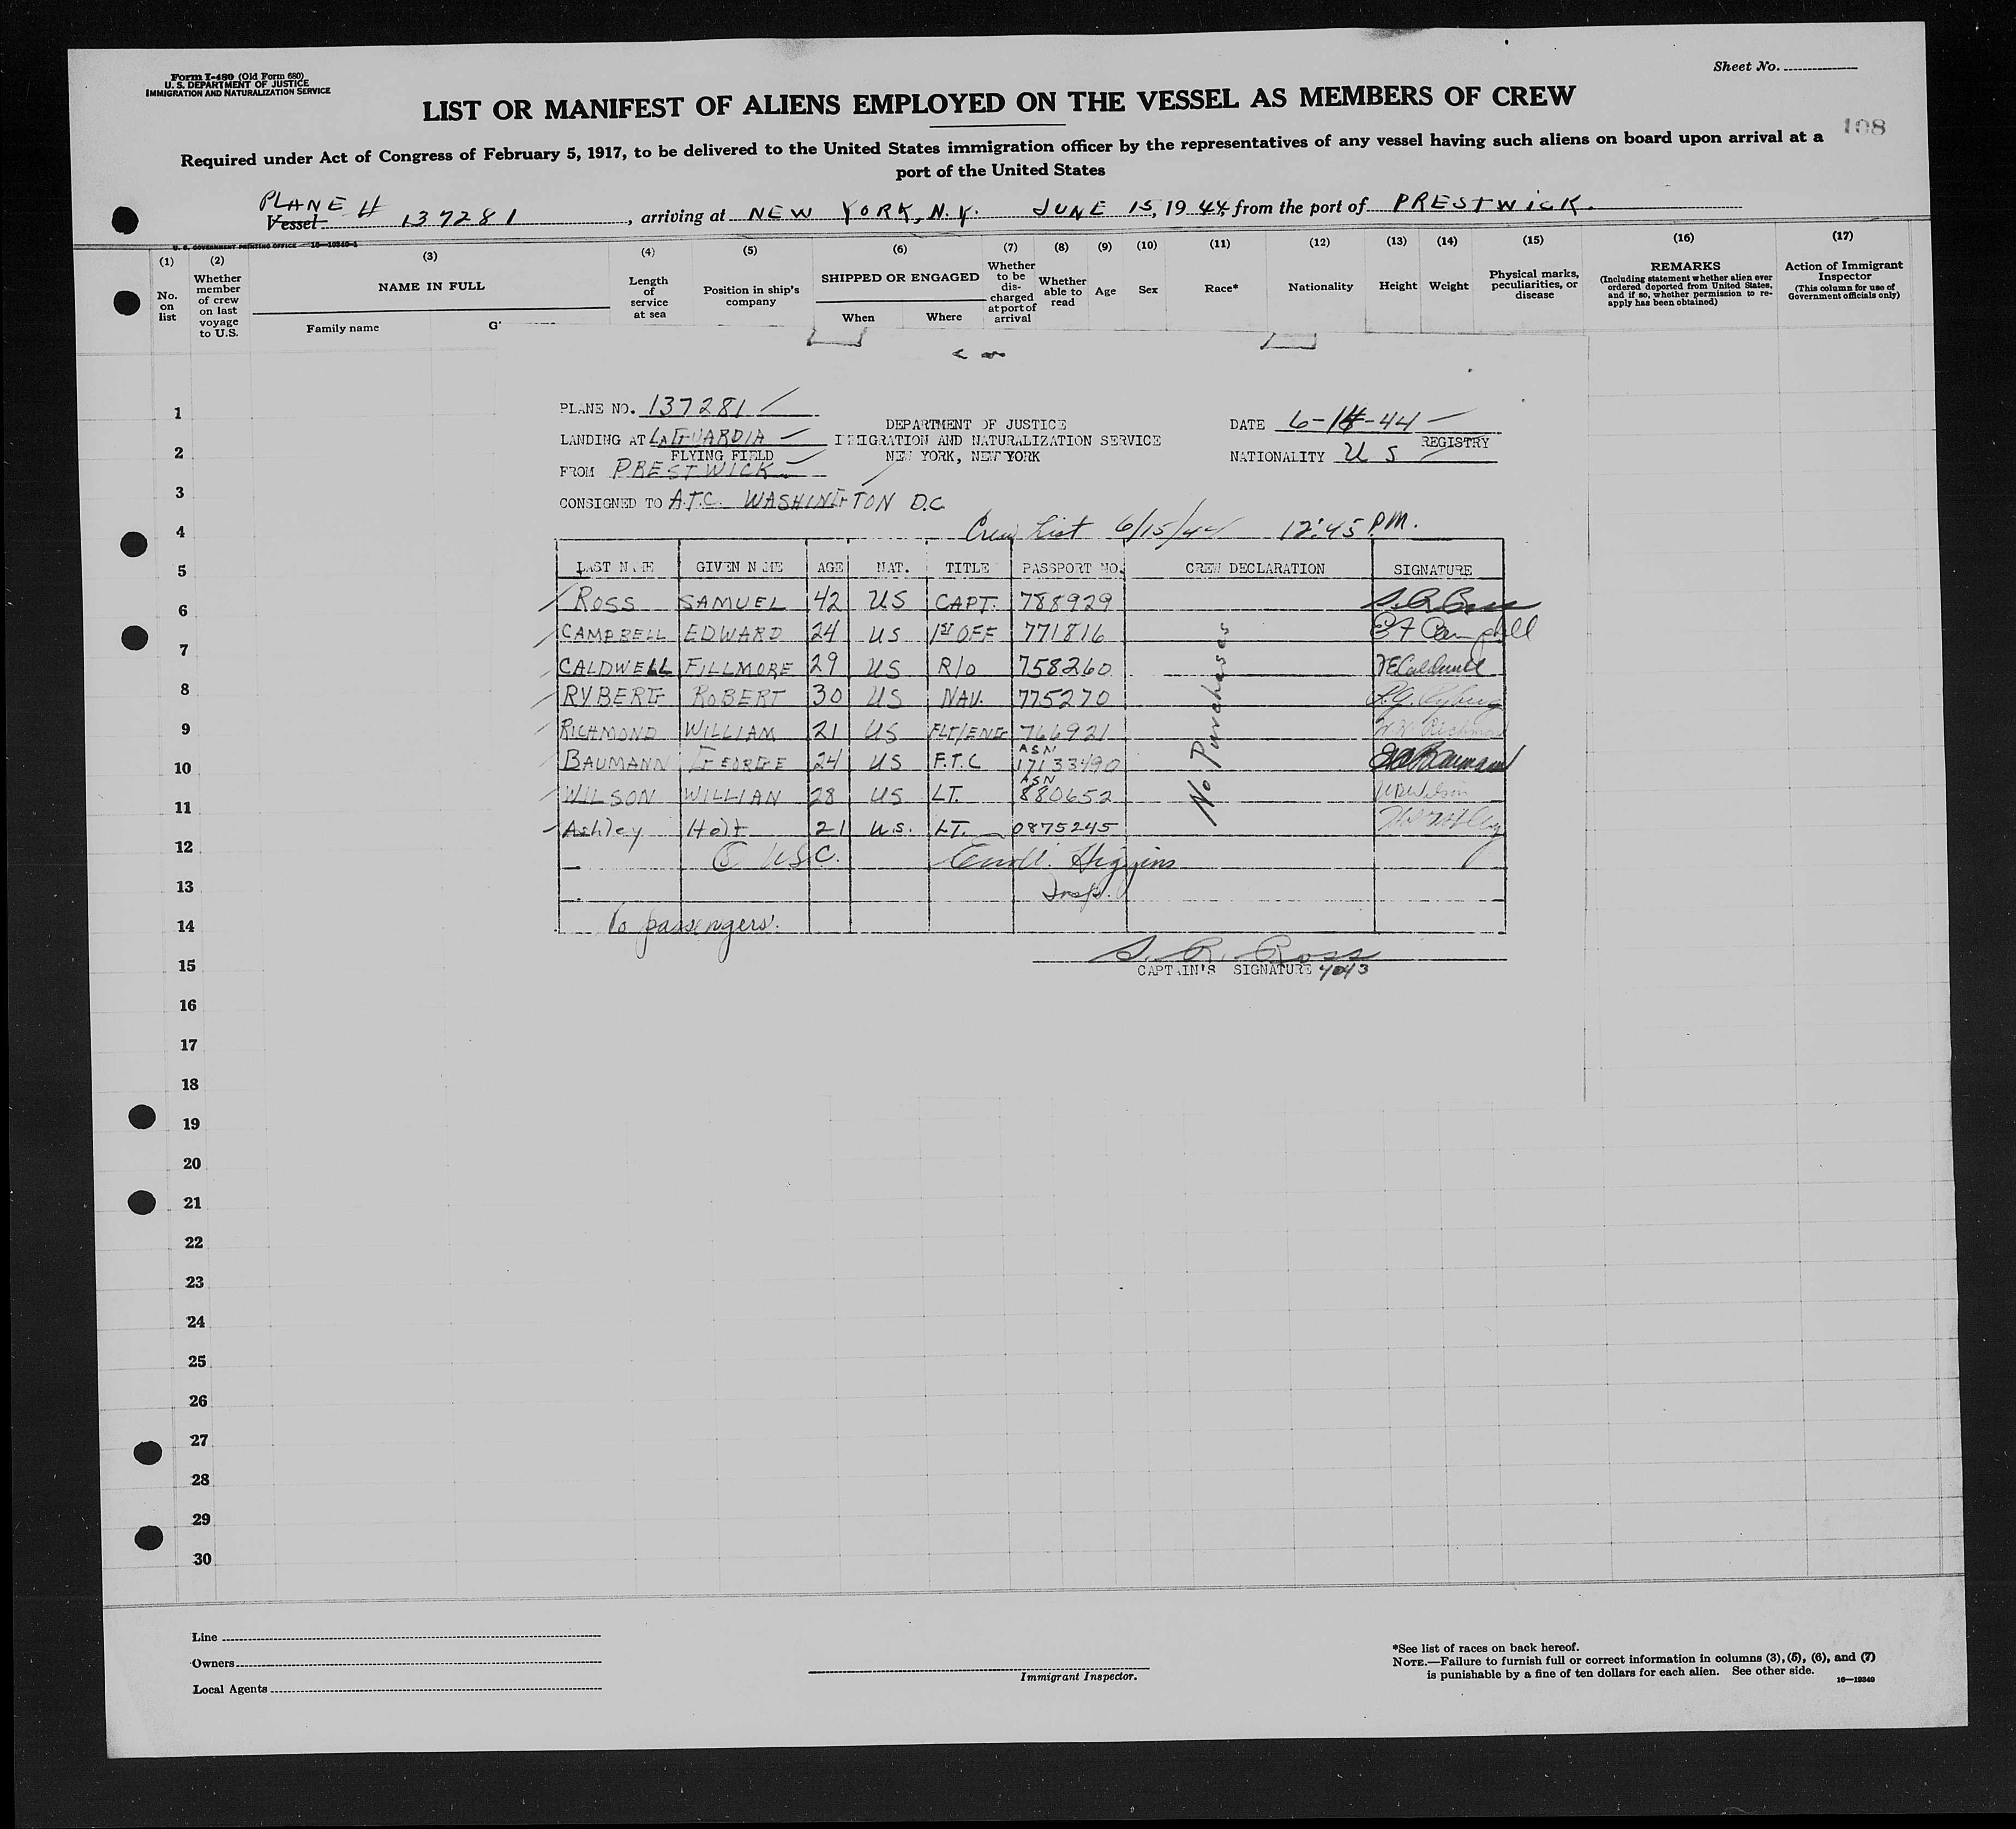 Form I-480 (Old Form 680)
U. S. DEPARTMENT OF JUSTICE
IMMIGRATION AND NATURALIZATION SERVICE
Sheet No.
LIST OR MANIFEST OF ALIENS EMPLOYED ON THE VESSEL AS MEMBERS OF CREW
108
Required under Act of Congress of February 5, 1917, to be delivered to the United States immigration officer by the representatives of any vessel having such aliens on board upon arrival at a
port of the United States
PLANE #
Vessel 137281, arriving at NEW YORK, N.Y. JUNE 15, 1944 from the port of PRESTWICK.
U. S. GOVERNMENT PRINTING OFFICE 16—19349-1
(1) (2) (3) (4) (5) (6) (7) (8) (9) (10) (11) (12) (13) (14) (15) (16) (17)
No. on list
Whether member of crew on last voyage to U.S.
NAME IN FULL
Family name
G
Length of service at sea
Position in ship's company
SHIPPED OR ENGAGED
When Where
Whether to be discharged at port of arrival
Whether able to read
Age
Sex
Race*
Nationality
Height
Weight
Physical marks, peculiarities, or disease
REMARKS
(Including statement whether alien ever ordered deported from United States, and if so, whether permission to re-apply has been obtained)
Action of Immigrant Inspector
(This column for use of Government officials only)
PLANE NO. 137281
DEPARTMENT OF JUSTICE
DATE 6-14-44
LANDING AT LAGUARDIA
IMMIGRATION AND NATURALIZATION SERVICE
REGISTRY
FLYING FIELD
NEW YORK, NEW YORK
NATIONALITY U S
FROM PRESTWICK
CONSIGNED TO A.T.C. WASHINGTON D.C.
Crew List 6/15/44 12:45 P.M.
LAST NAME GIVEN NAME AGE NAT. TITLE PASSPORT NO. CREW DECLARATION SIGNATURE
ROSS SAMUEL 42 US CAPT. 788929 S. R. Ross
CAMPBELL EDWARD 24 US 1ST OFF 771816 E F Campbell
CALDWELL FILLMORE 29 US R/O 758260 F E Caldwell
RYBERG ROBERT 30 US NAV. 775270 R. G. Ryberg
RICHMOND WILLIAM 21 US FLT/ENG 766921 W. W. Richmond
BAUMANN GEORGE 24 US F.T.C ASN 17133490 Baumann
WILSON WILLIAN 28 US LT. ASN 880652 Wilson
Ashley Holt 21 U.S. LT. 0875245
No Purchases
8 USC. Higgins
Insp.
16 passengers.
S. R. Ross
CAPTAIN'S SIGNATURE 4043
1
2
3
4
5
6
7
8
9
10
11
12
13
14
15
16
17
18
19
20
21
22
23
24
25
26
27
28
29
30
Line
Owners
Local Agents
Immigrant Inspector.
*See list of races on back hereof.
NOTE.—Failure to furnish full or correct information in columns (3), (5), (6), and (7)
is punishable by a fine of ten dollars for each alien. See other side.
16—19349